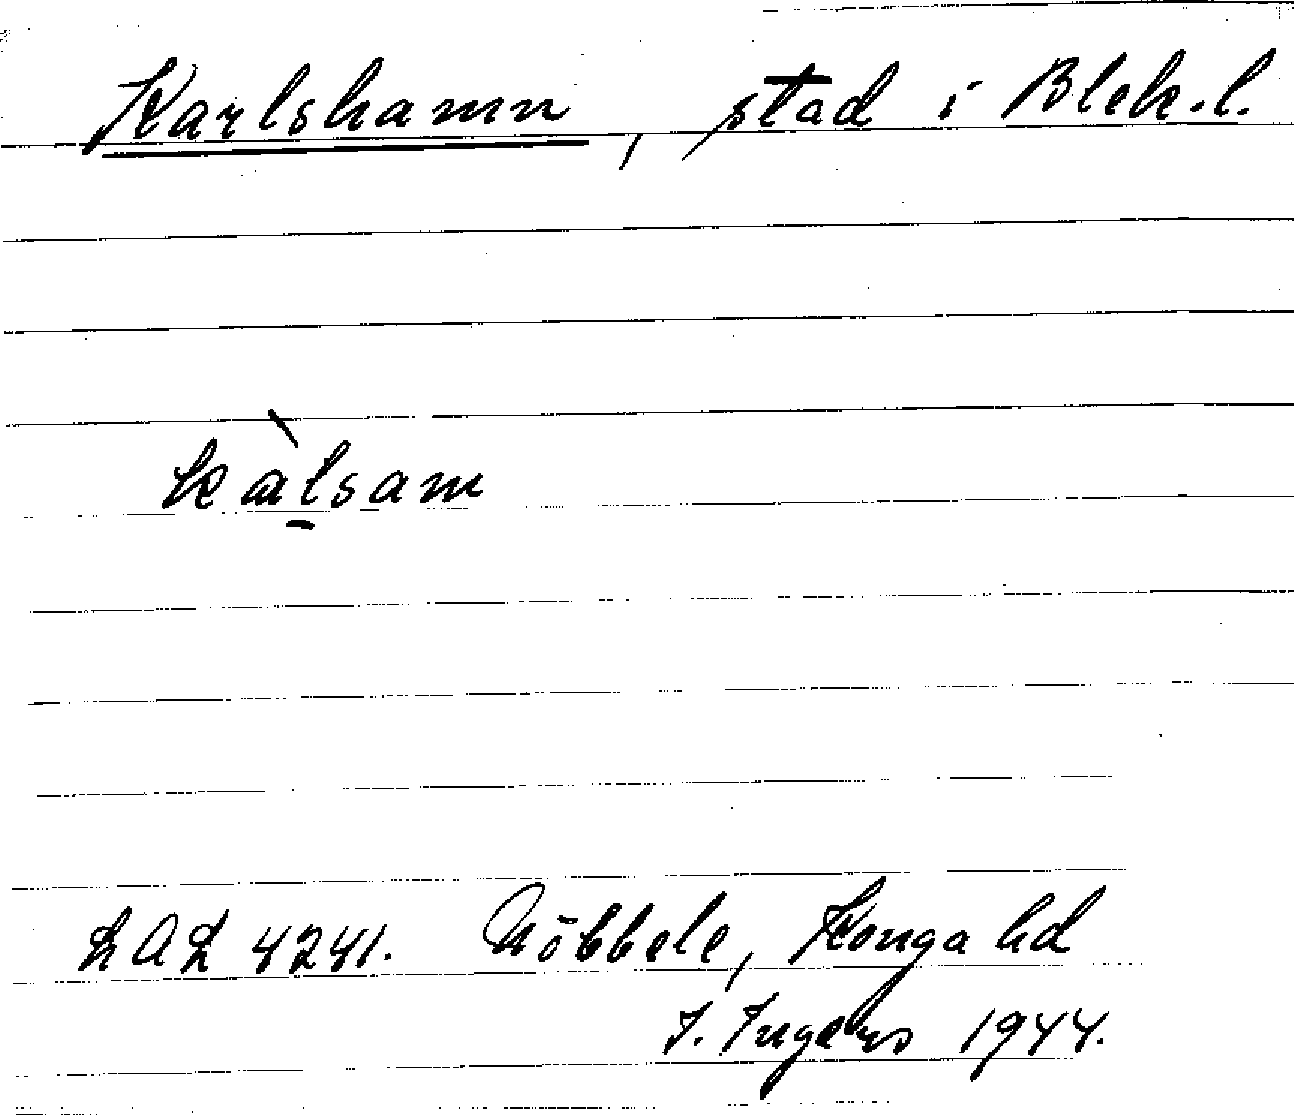 Karlshamn, stad i Blek.l.
kàlsam
LAL 4241. Nöbbele, Konga hd
I. Ingers 1944.